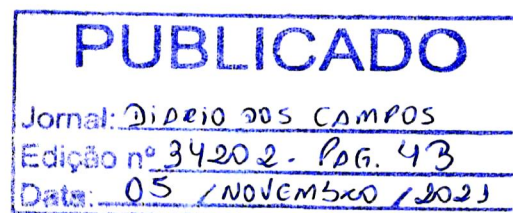 PUBLICADO
Jornal: DIARIO DOS CAMPOS
Edição nº 34202 - PAG. 43
Data: 05 / NOVEMBRO / 2021